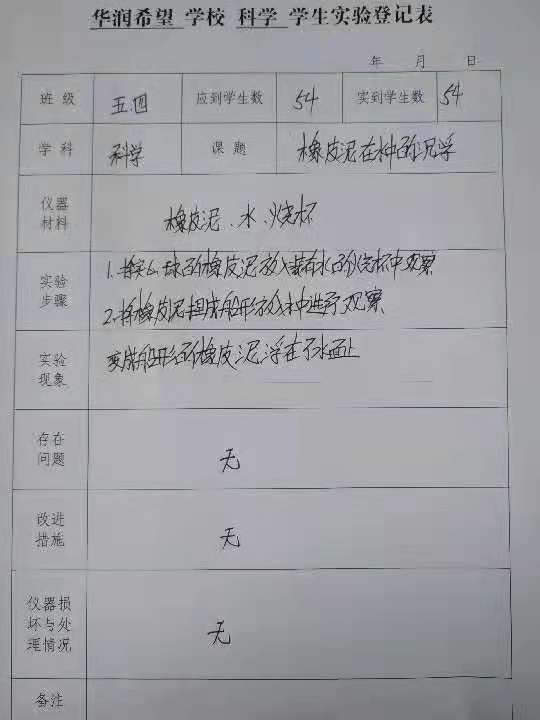 华润希望 学校 科学 学生实验登记表
年 月 日
班 级 五.四 应到学生数 54 实到学生数 54
学 科 科学 课 题 橡皮泥在水中的沉浮
仪器
材料
橡皮泥、水、烧杯
实验
步骤
1.将实心球的橡皮泥放入装有水的烧杯中观察
2.将橡皮泥捏成船形放入水中进行观察
实验
现象
变成船形的橡皮泥浮在水面上
存在
问题
无
改进
措施
无
仪器损
坏与处
理情况
无
备注